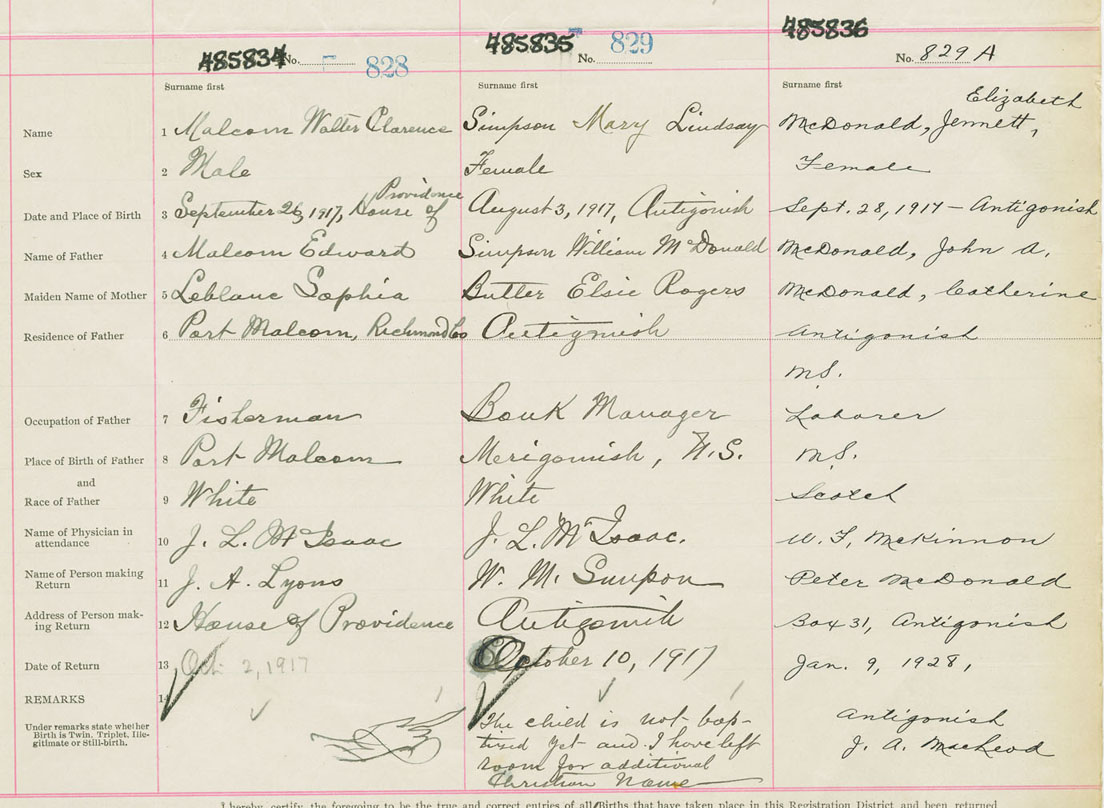 485834 No. 828
485835 No. 829
485836 No. 829 A
Surname first Surname first Surname first
Elizabeth
Name 1 Malcom Walter Clarence Simpson Mary Lindsay McDonald, Jennett,
Sex 2 Male Female Female
Providence
Date and Place of Birth 3 September 26, 1917, House of August 3, 1917, Antigonish Sept. 28, 1917 - Antigonish
Name of Father 4 Malcom Edward Simpson William McDonald McDonald, John A.
Maiden Name of Mother 5 Leblanc Sophia Butler Elsie Rogers McDonald, Catherine
Residence of Father 6 Port Malcom, Richmond Co Antigonish Antigonish
N.S.
Occupation of Father 7 Fisherman Bank Manager Laborer
Place of Birth of Father 8 Port Malcom Merigomish, N.S. N.S.
and
Race of Father 9 White White Scotch
Name of Physician in
attendance 10 J. L. McIsaac J. L. McIsaac. W. F. McKinnon
Name of Person making
Return 11 J. A. Lyons W. M. Simpson Peter McDonald
Address of Person mak-
ing Return 12 House of Providence Antigonish Box 31, Antigonish
Date of Return 13 Oct 2, 1917 October 10, 1917 Jan. 9, 1928,
REMARKS 14
Under remarks state whether
Birth is Twin, Triplet, Ille-
gitimate or Still-birth.
The child is not bap-
tized yet and I have left
room for additional
Christian Name
Antigonish
J. A. MacLeod
I hereby certify the foregoing to be the true and correct entries of all Births that have taken place in this Registration District and been returned